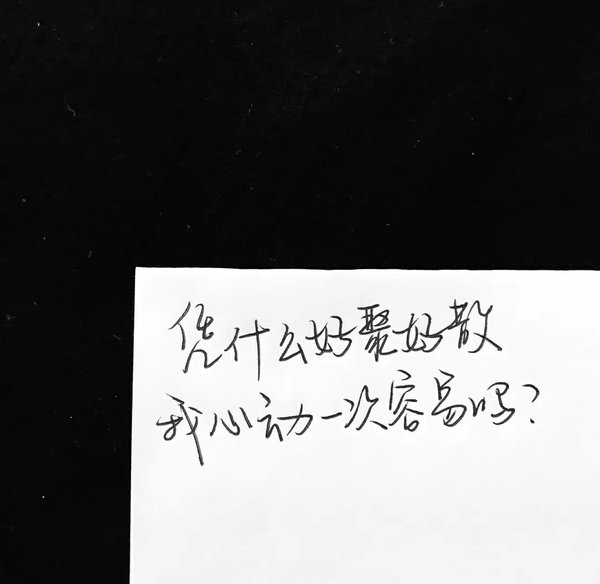 凭什么好聚好散
我心动一次容易吗?